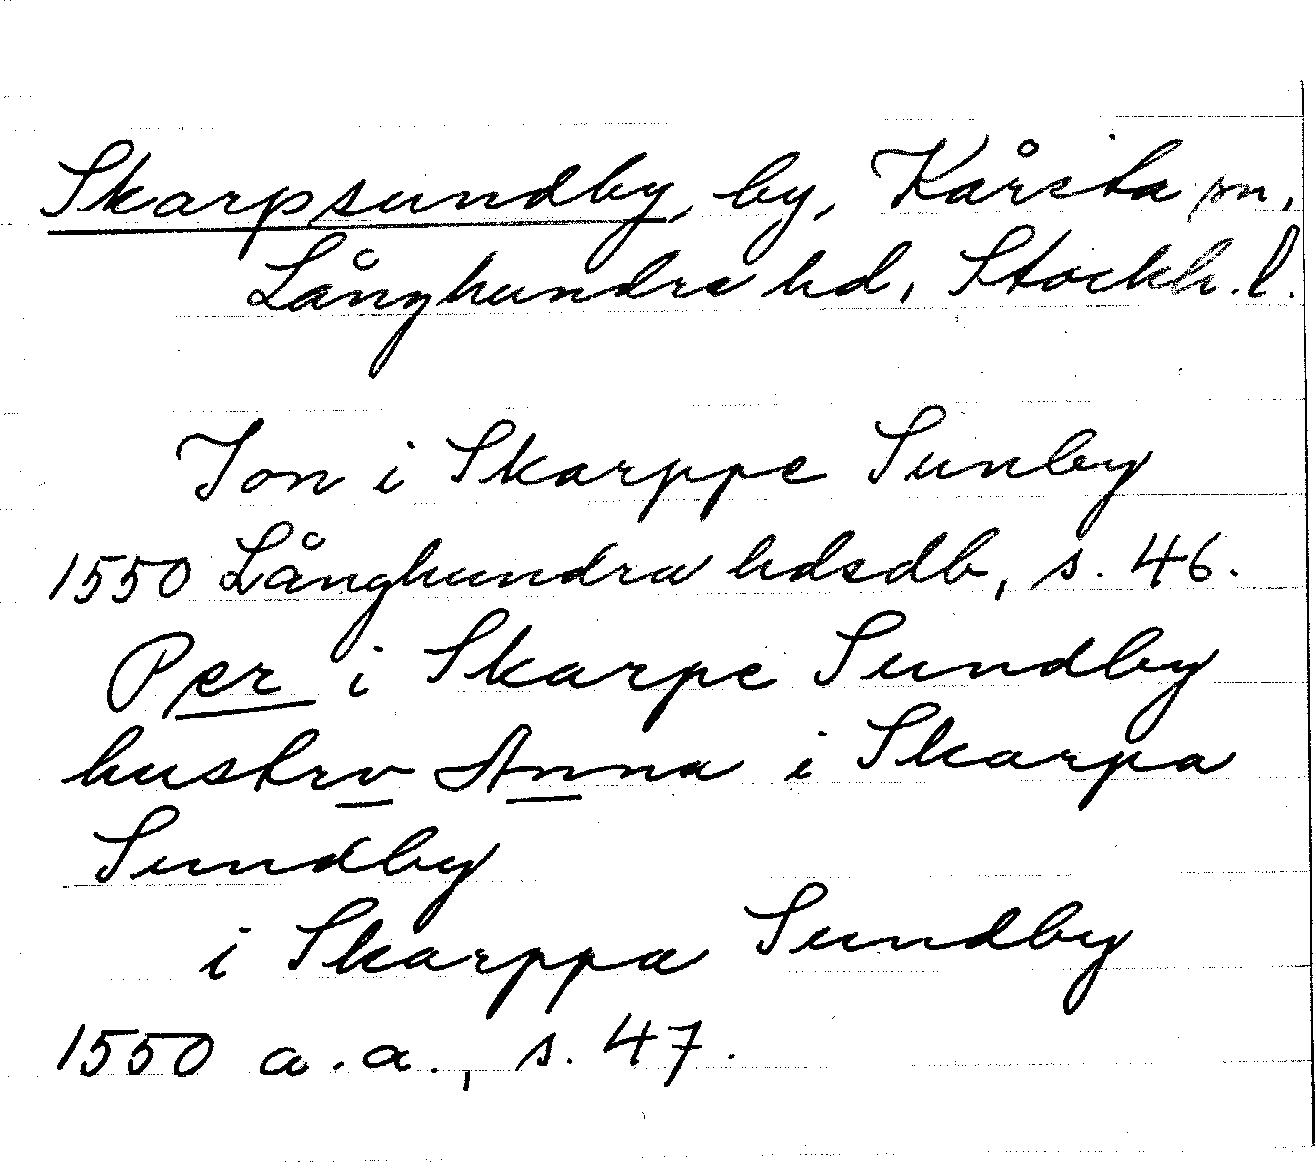 Skarpsundby, by, Kårsta sn,
Långhundra hd, Stockh. l.
Jon i Skarppe Sunby
1550 Långhundra hdsdb, s. 46.
Per i Skarpe Sundby
hustrv Anna i Skarpa
Sundby
i Skarppa Sundby
1550 a.a., s. 47.